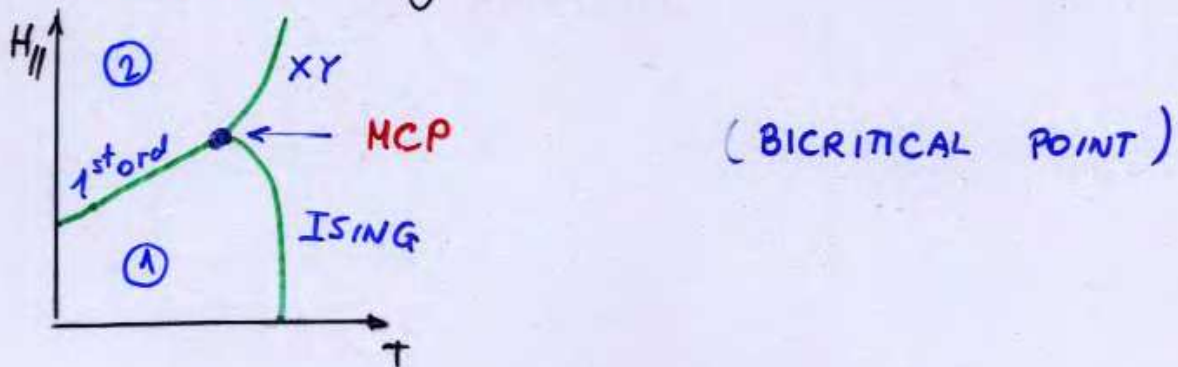 H//
②
XY
1st ord
MCP
(BICRITICAL POINT)
ISING
①
T